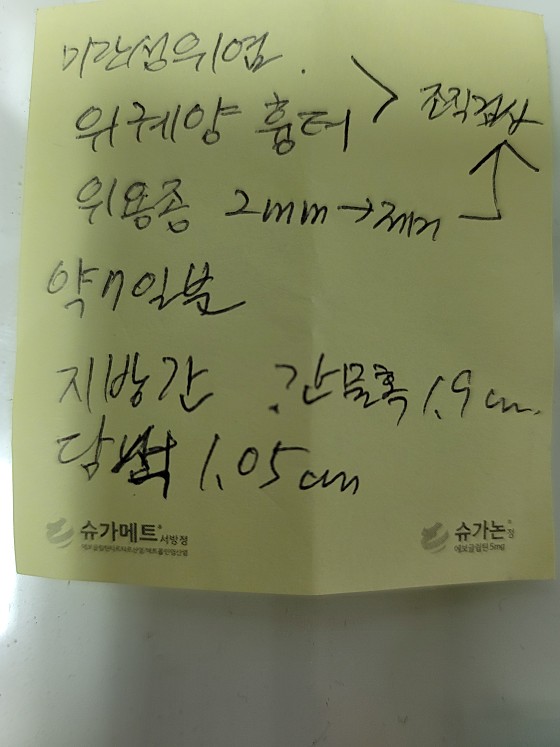 미란성위염.
위궤양 흉터 > 조직검사
위용종 2mm → 제거
약 7일분
지방간 간물혹 1.9cm.
담석 1.05cm
슈가메트® 서방정
슈가논® 정
에보글립틴 5mg